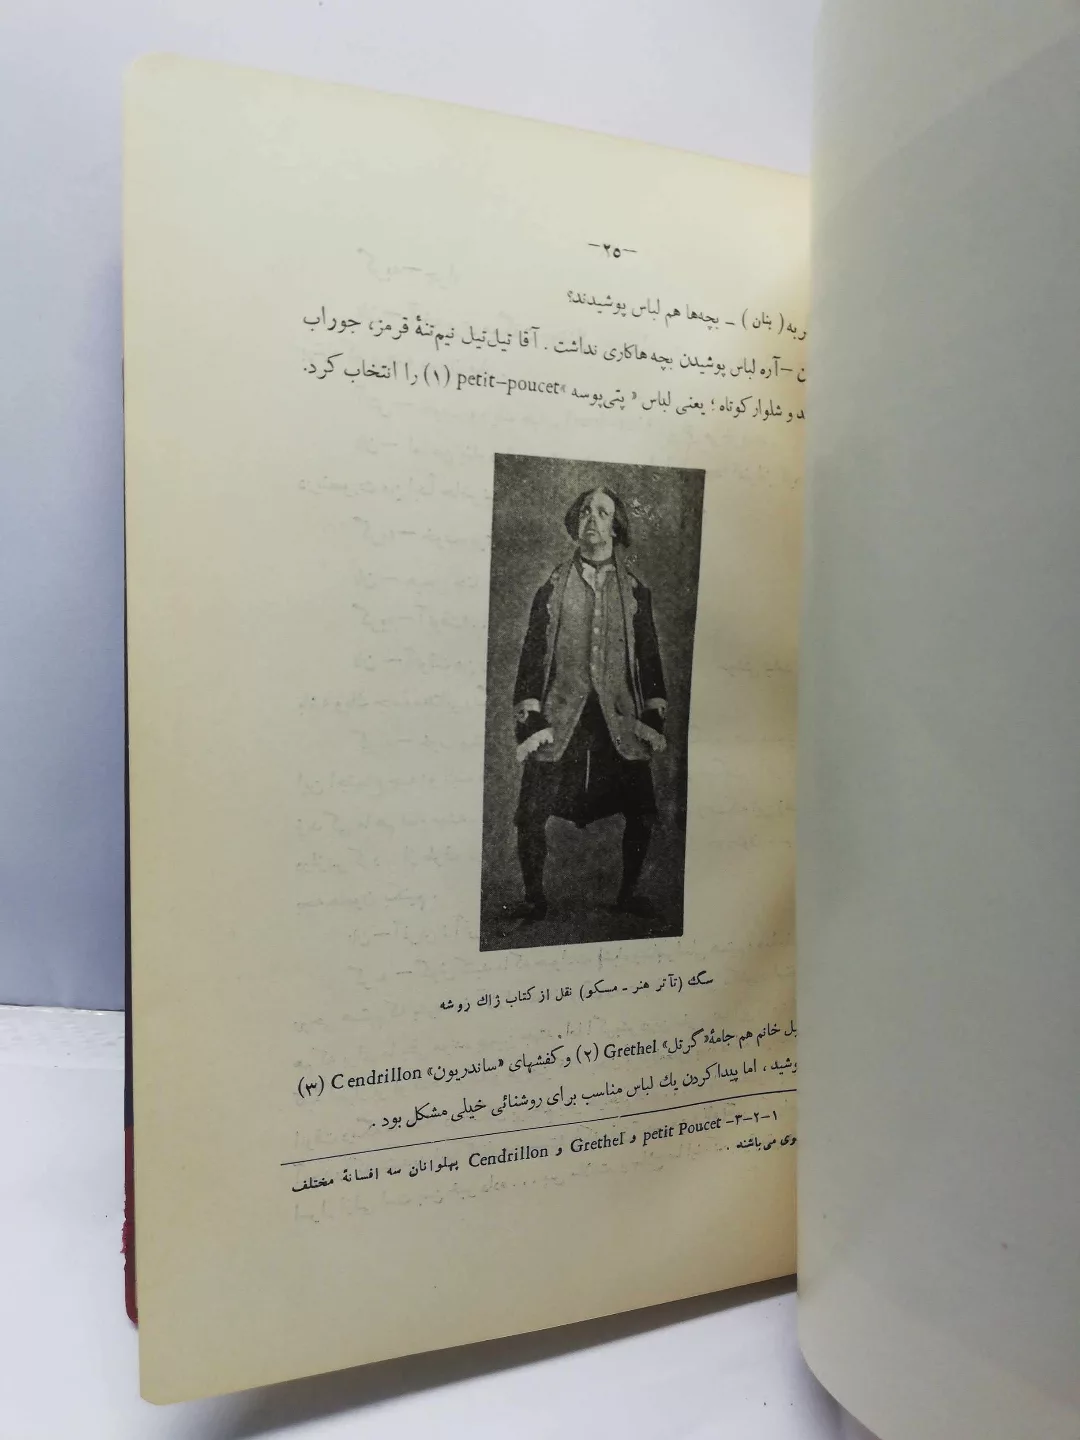 -۲۵-
ربه ( بنان ) - بچه‌ها هم لباس پوشیدند؟
ن - آره لباس پوشیدن بچه هاکاری نداشت . آقا تیل‌تیل نیم‌تنهٔ قرمز، جوراب
د و شلوار کوتاه ؛ یعنی لباس « پتی‌پوسه »petit-poucet (۱) را انتخاب کرد.
سگ (تآتر هنر - مسکو) نقل از کتاب ژاك روشه
یل خانم هم جامهٔ« گرتل» Grethel (۲) و کفشهای «ساندریون» Cendrillon (۳)
وشید ، اما پیدا کردن یك لباس مناسب برای روشنائی خیلی مشکل بود .
۱-۲-۳- petit Poucet و Grethel و Cendrillon پهلوانان سه افسانهٔ مختلف
وی می‌باشند .